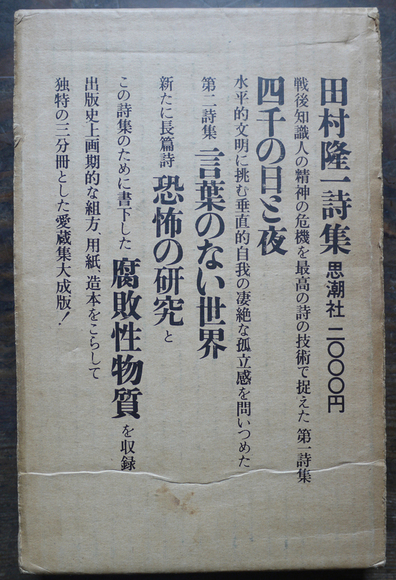 田村隆一詩集 思潮社 二〇〇〇円
戦後知識人の精神の危機を最高の詩の技術で捉えた 第一詩集
四千の日と夜
水平的文明に挑む垂直的自我の凄絶な孤立感を問いつめた
第二詩集 言葉のない世界
新たに長篇詩 恐怖の研究 と
この詩集のために書下した 腐敗性物質 を収録
出版史上画期的な組方、用紙、造本をこらして
独特の三分冊とした愛蔵集大成版!